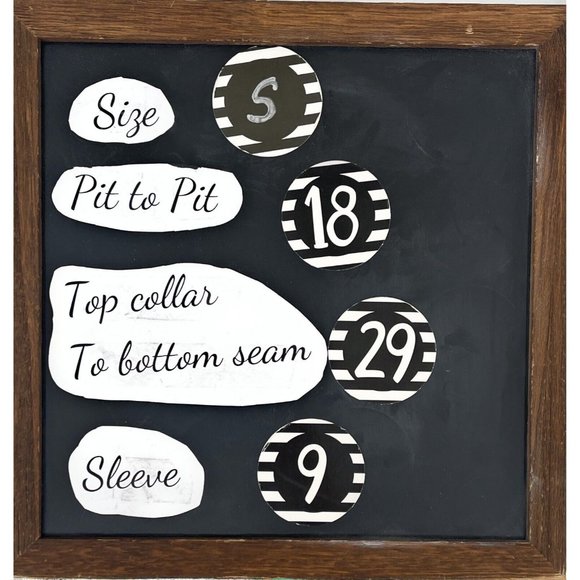 Size S
Pit to Pit 18
Top collar
To bottom seam 29
Sleeve 9